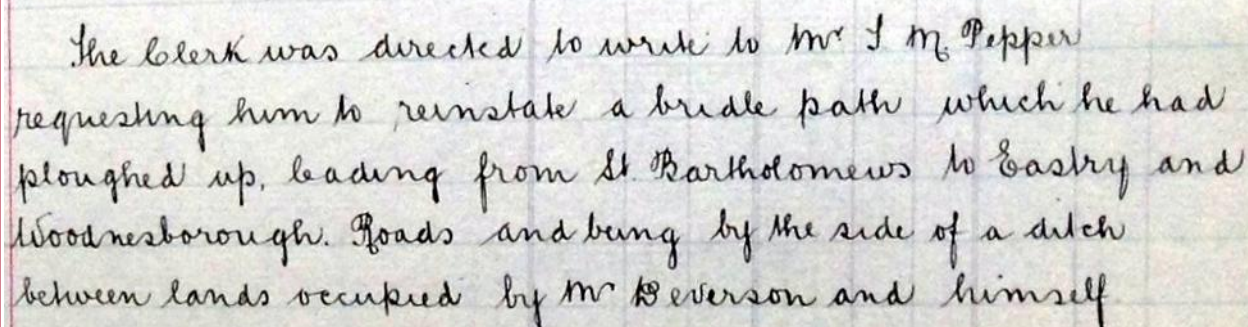 The Clerk was directed to write to Mr T M Pepper
requesting him to reinstate a bridle path which he had
ploughed up, leading from St. Bartholomews to Eastry and
Woodnesborough. Roads and being by the side of a ditch
between lands occupied by Mr Deverson and himself